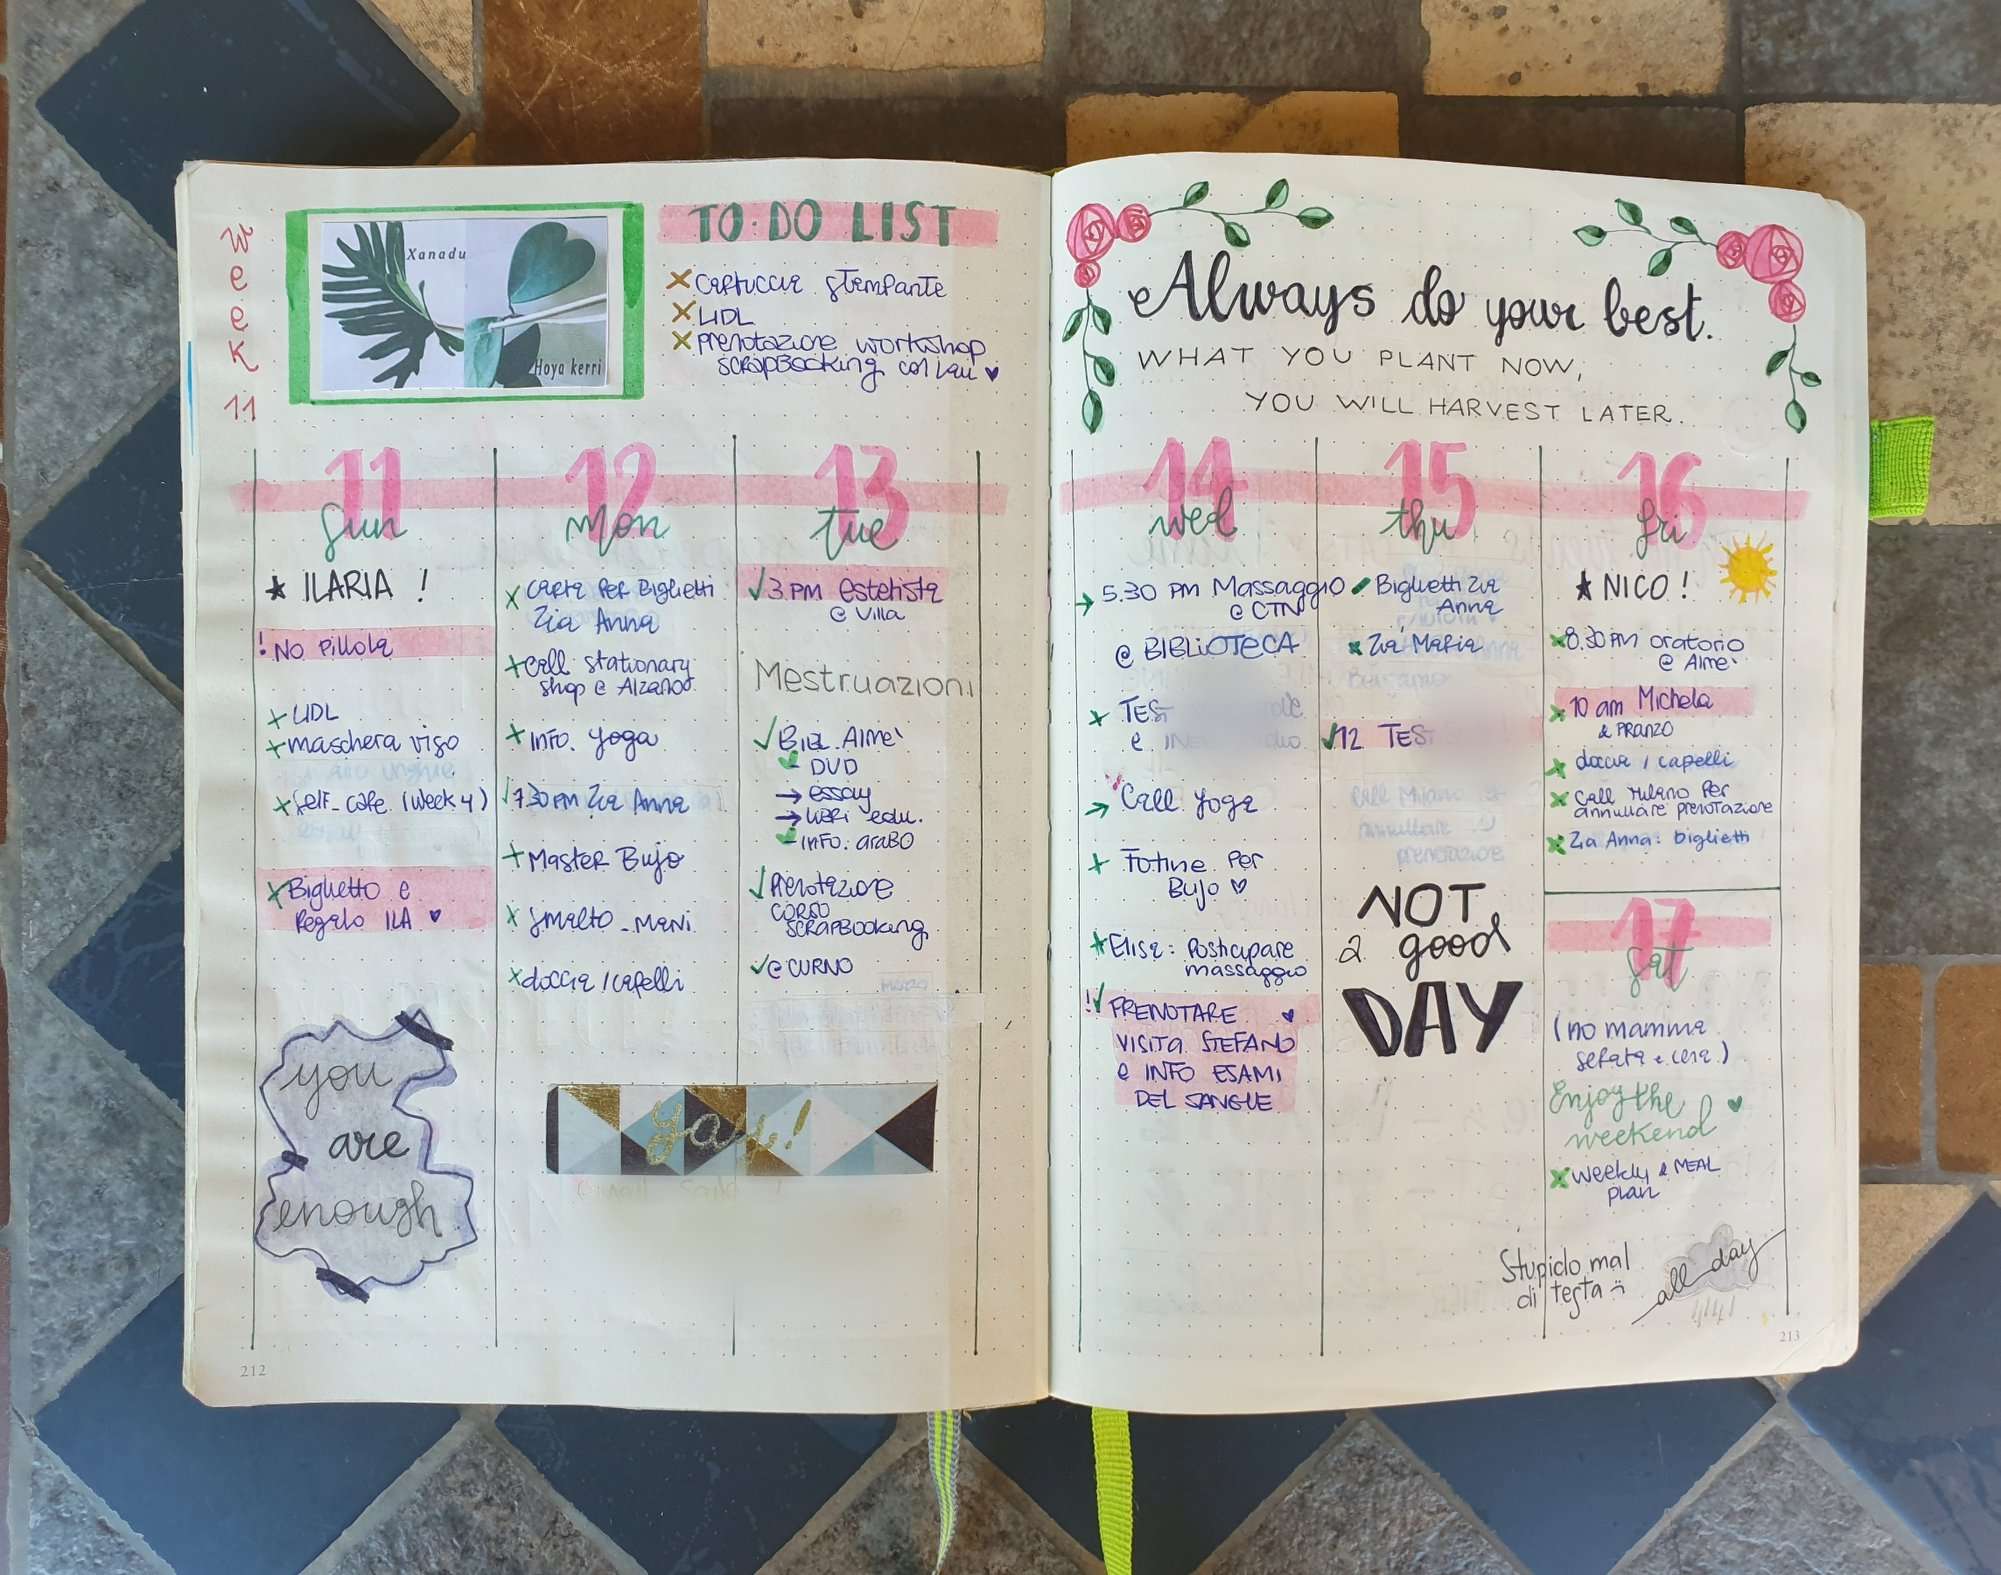 Week
11
Xanadu
Hoya kerri
TO·DO LIST
cartuccia stampante
LIDL
prenotazione workshop
scrapBooking con Lau
11
Sun
ILARIA !
! No pillola
LIDL
maschera viso
self-care (week 4)
Biglietto e
Regalo ILA
you
are
enough
12
Mon
carta per Biglietti
Zia Anna
call stationary
shop @ Alzano
INFO. yoga
7.30 PM Zia Anna
Master Bujo
smalto - mani
doccia / capelli
13
tue
3 PM estetista
@ Villa
Mestruazioni
BIBL. Almè
- DVD
→ essay
→ libri edu.
- INFO: araBO
Prenotazione
CORSO
SCRAPBooking
@ CURNO
yay!
212
Always do your best.
WHAT YOU PLANT NOW,
YOU WILL HARVEST LATER.
14
wed
→ 5.30 PM Massaggio
@ CTN
@ BIBLIOTECA
TEST
e
→ Call yoga
Fotine per
Bujo
Elisa: Posticipare
massaggio
! PRENOTARE
VISITA STEFANO
e INFO ESAMI
DEL SANGUE
15
thu
Biglietti Zia
Anna
Zia Maria
12 TEST
NOT
a good
DAY
16
fri
NICO !
8.30 PM oratorio
@ Almè
10 am Michela
& PRANZO
doccia / capelli
Call Milano Per
annullare prenotazione
Zia Anna: biglietti
17
Sat
(no mamma
serata e cena)
Enjoy the
weekend
weekly & MEAL
plan
Stupido mal
di testa
all day
213